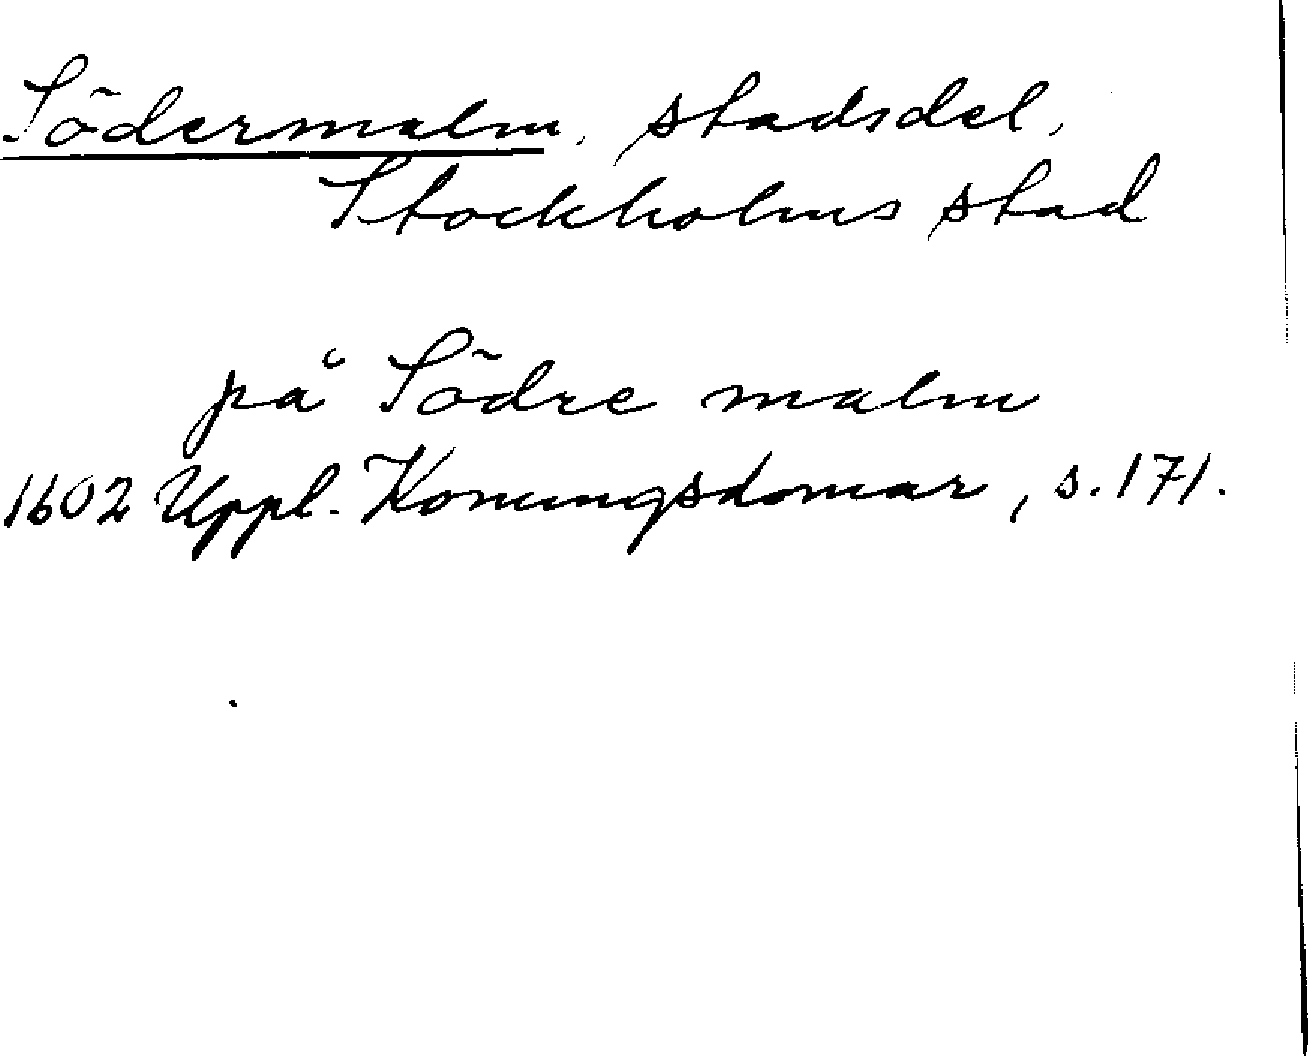 Södermalm, stadsdel,
Stockholms stad
på Södre malm
1602 Uppl. Konungsdomar, s. 171.